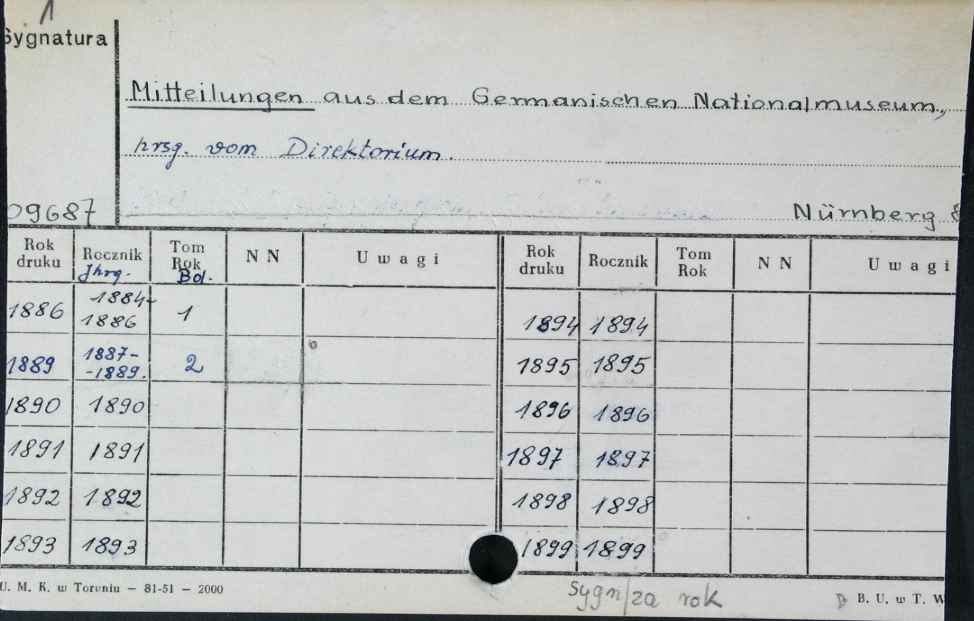 1
Sygnatura
Mitteilungen aus dem Germanischen Nationalmuseum,
hrsg. vom Direktorium.
09687
Nürnberg
Rok druku Rocznik Jhrg. Tom Rok Bd. N N Uwagi Rok druku Rocznik Tom Rok N N Uwagi
1886 1884-1886 1 1894 1894
1889 1887--1889. 2 1895 1895
1890 1890 1896 1896
1891 1891 1897 1897
1892 1892 1898 1898
1893 1893 1899 1899
U. M. K. w Toruniu — 81-51 — 2000
Sygn/za rok
B. U. w T. W